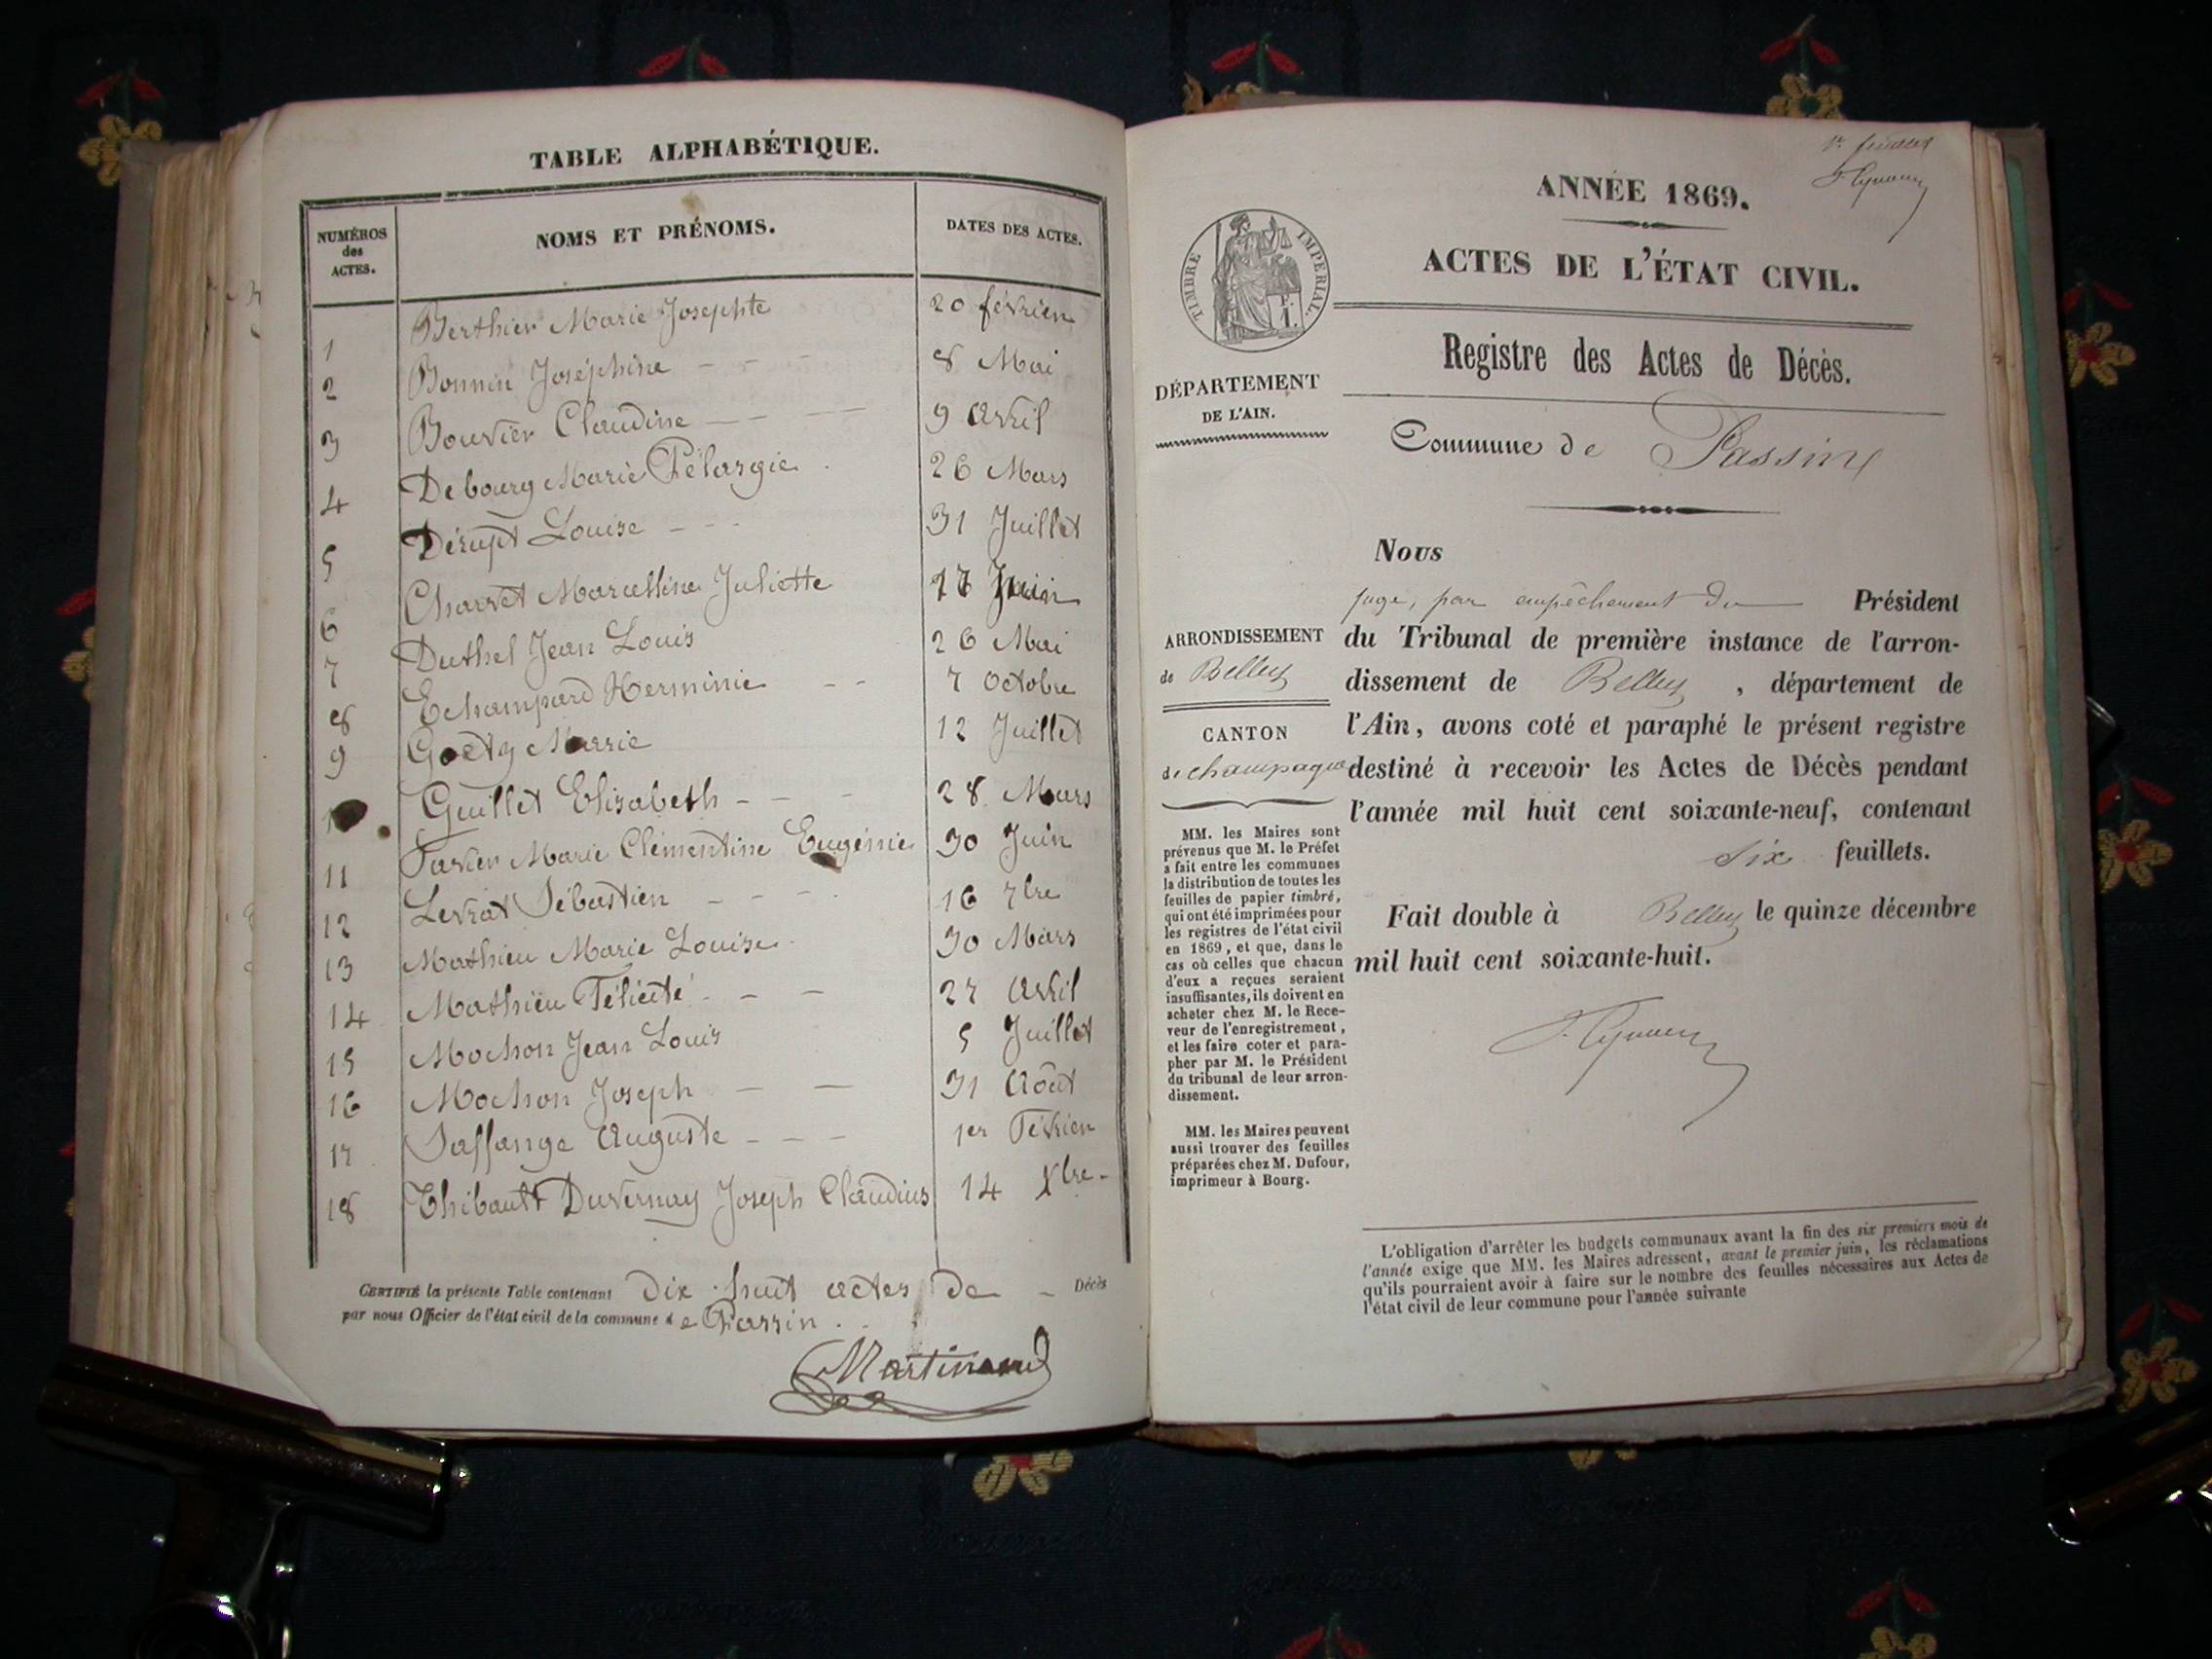 TABLE ALPHABÉTIQUE.
NUMÉROS des ACTES. NOMS ET PRÉNOMS. DATES DES ACTES.
1 Berthier Marie Josephte 20 février
2 Bonnin Joséphine - - - 8 Mai
3 Bouvier Claudine - - - 9 Avril
4 Debourg Marie Pélargie . 26 Mars
5 Dérupt Louise - - - 31 Juillet
6 Charvet Marcelline Juliette 17 Juin
7 Duthel Jean Louis 26 Mai
8 Echampard Herminie - - 7 Octobre
9 Goëtz Marie 12 Juillet
Guillet Elisabeth - - - 28 Mars
11 Marie Clémentine Eugénie 30 Juin
12 Levrat Sébastien - - - 16 7bre
13 Mathieu Marie Louise 30 Mars
14 Mathieu Félicité - - - 27 Avril
15 Mochon Jean Louis 5 Juillet
16 Mochon Joseph - - 31 Août
17 Auguste - - - 1er Février
18 Thibault Duvernay Joseph Claudius 14 Xbre -
CERTIFIÉ la présente Table contenant Dix huit actes de - Décès
par nous Officier de l'état civil de la commune de Passin . .
Martinand
ANNÉE 1869.
ACTES DE L'ÉTAT CIVIL.
TIMBRE IMPÉRIAL.
Registre des Actes de Décès.
DÉPARTEMENT
DE L'AIN.
Commune de Passin
Nous
juge, par empêchement du Président
du Tribunal de première instance de l'arron-
dissement de Belley , département de
l'Ain, avons coté et paraphé le présent registre
destiné à recevoir les Actes de Décès pendant
l'année mil huit cent soixante-neuf, contenant
six feuillets.
Fait double à Belley le quinze décembre
mil huit cent soixante-huit.
ARRONDISSEMENT
de Belley
CANTON
de champagne
MM. les Maires sont
prévenus que M. le Préfet
a fait entre les communes
la distribution de toutes les
feuilles de papier timbré,
qui ont été imprimées pour
les registres de l'état civil
en 1869, et que, dans le
cas où celles que chacun
d'eux a reçues seraient
insuffisantes, ils doivent en
acheter chez M. le Rece-
veur de l'enregistrement,
et les faire coter et para-
pher par M. le Président
du tribunal de leur arron-
dissement.
MM. les Maires peuvent
aussi trouver des feuilles
préparées chez M. Dufour,
imprimeur à Bourg.
L'obligation d'arrêter les budgets communaux avant la fin des six premiers mois de
l'année exige que MM. les Maires adressent, avant le premier juin, les réclamations
qu'ils pourraient avoir à faire sur le nombre des feuilles nécessaires aux Actes de
l'état civil de leur commune pour l'année suivante